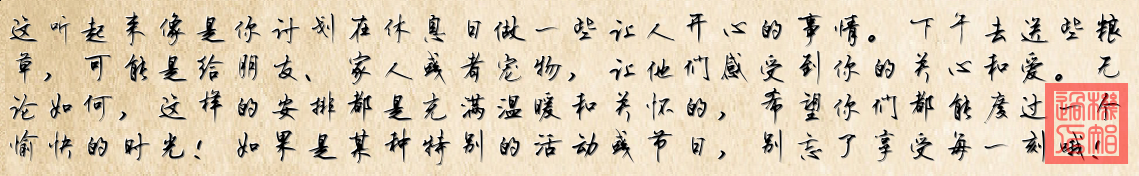 这听起来像是你计划在休息日做一些让人开心的事情。下午去送些粮
草，可能是给朋友、家人或者宠物，让他们感受到你的关心和爱。无
论如何，这样的安排都是充满温暖和关怀的，希望你们都能度过一个
愉快的时光！如果是某种特别的活动或节日，别忘了享受每一刻哦！